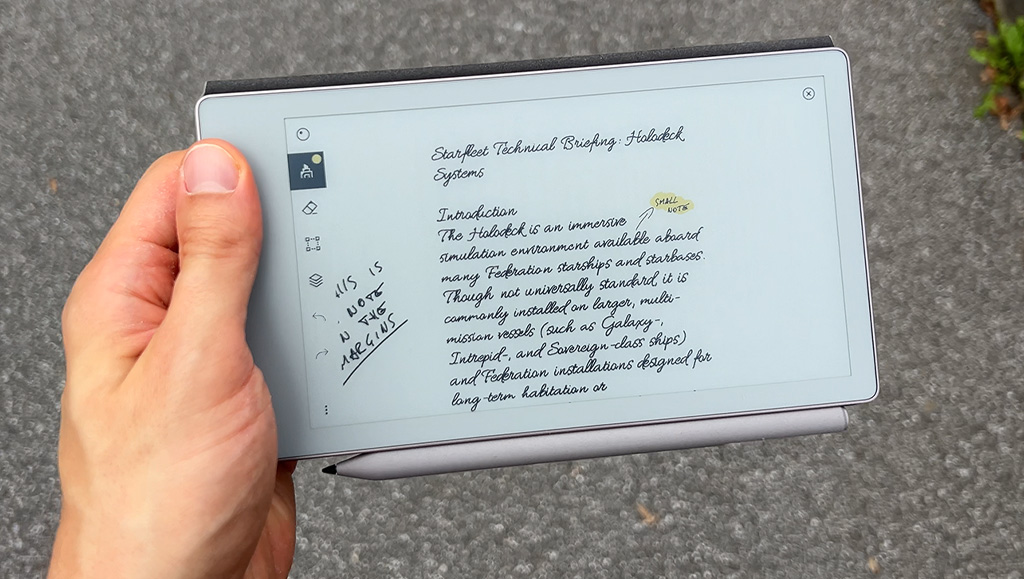 Starfleet Technical Briefing: Holodeck
Systems
Introduction
The Holodeck is an immersive
simulation environment available aboard
many Federation starships and starbases.
Though not universally standard it is
commonly installed on larger, multi-
mission vessels (such as Galaxy-,
Intrepid-, and Sovereign-class ships)
and Federation installations designed for
long-term habitation or
SMALL
NOTE
IS
NOTE
THE
MARGINS